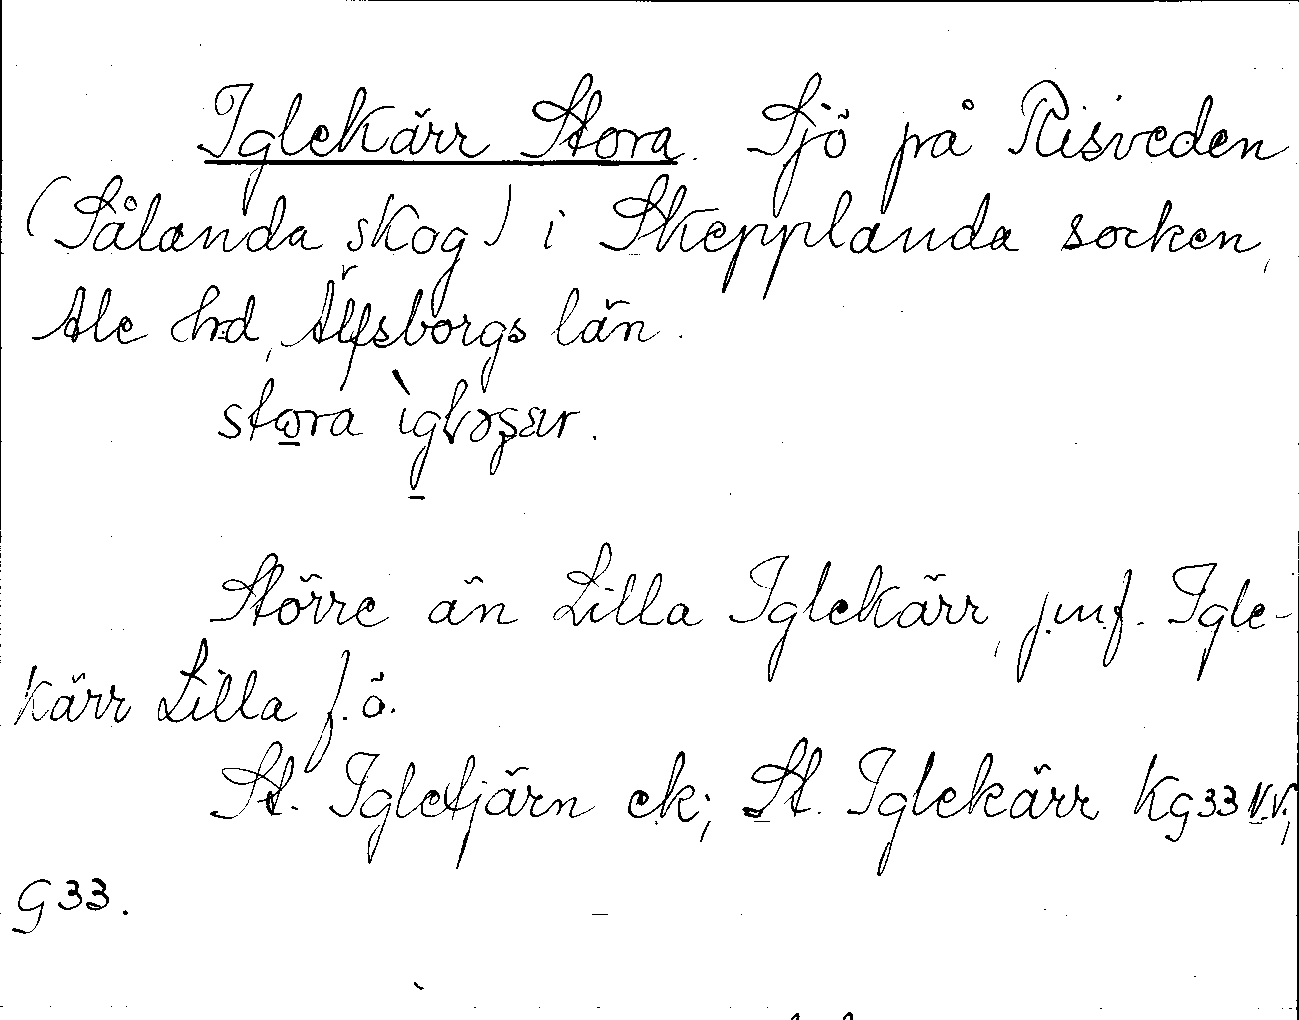 Iglekärr Stora. Sjö på Risveden
(Sålanda skog) i Skepplanda socken,
Ale hd, Älfsborgs län.
stora
Större än Lilla Iglekärr, jmf. Igle-
kärr Lilla f. ö.
St. Igletjärn ek; St. Iglekärr Kg33 V.V.;
G33.